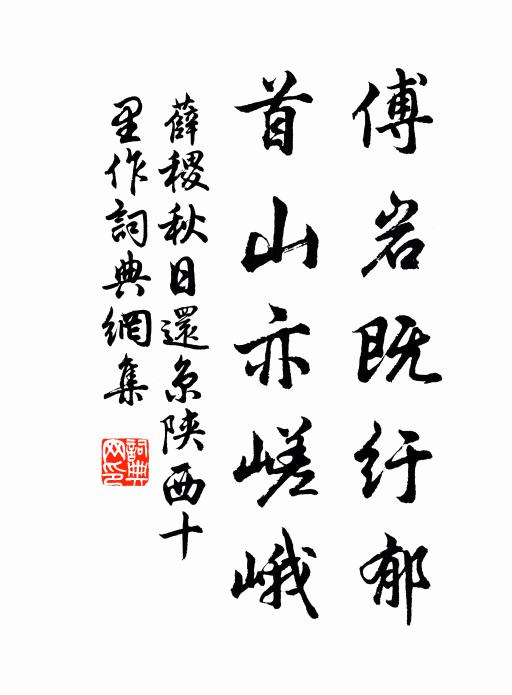 傅岩既纡郁
首山亦嵯峨
薛稷秋日還京陝西十
里作詞典網集
詞典网印